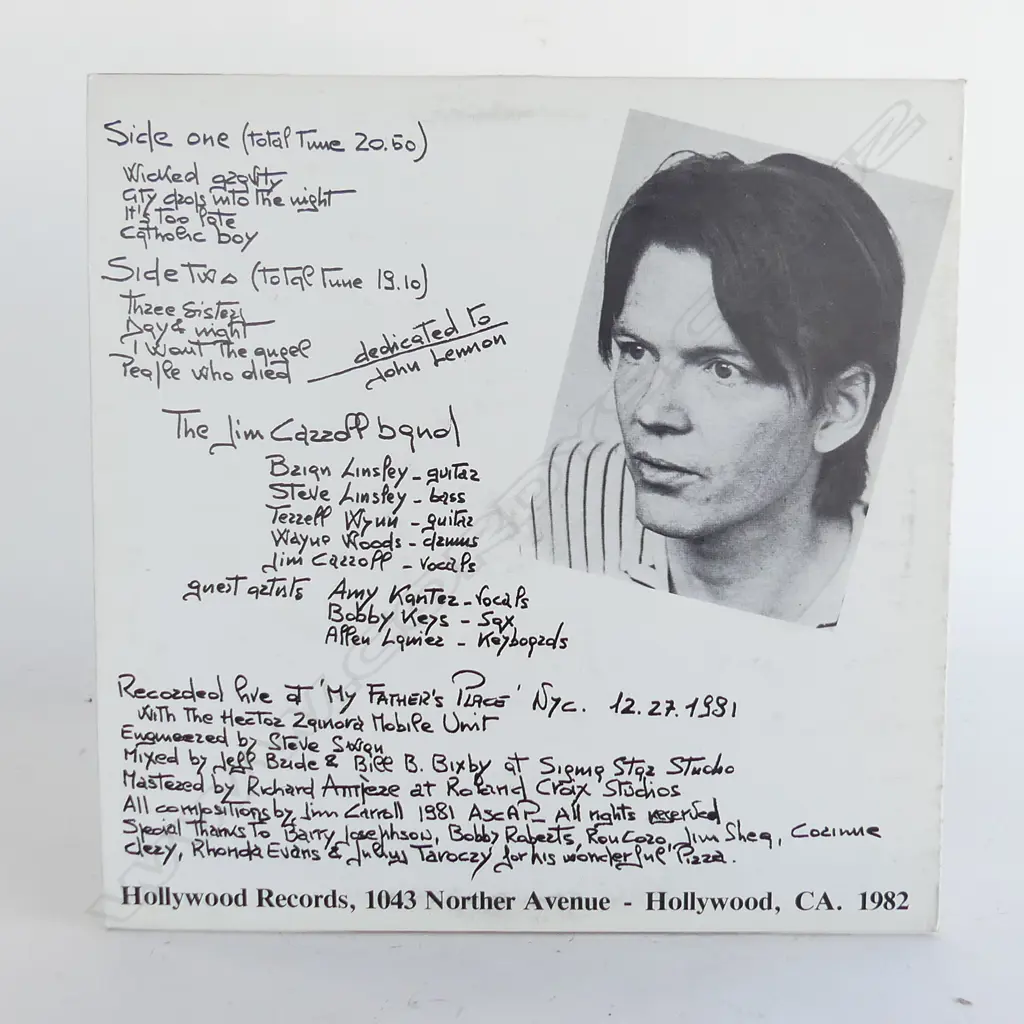 Side one (total Time 20.50)
Wicked gravity
City drops into the night
It's too late
Catholic boy
Side Two (total Time 19.10)
Three sisters
Day & night
I want the angel
People who died
dedicated to
John Lennon
The Jim Carroll band
Brian Linsley - guitar
Steve Linsley - bass
Terrell Wynn - guitar
Wayne Woods - drums
Jim Carroll - vocals
guest artists Amy Kanter - vocals
Bobby Keys - Sax
Allen Lanier - Keyboards
Recorded live at 'My Father's Place' Nyc. 12.27.1981
With The Hector Zamora Mobile Unit
Engineered by Steve Swan
Mixed by Jeff Bride & Bill B. Bixby at Sigma Star Studio
Mastered by Richard at Roland Croix Studios
All compositions by Jim Carroll 1981 AscAP_ All rights reserved
Special Thanks To Barry Josephson, Bobby Roberts, Ron Coro, Jim Shea, Corinne
Clery, Rhonda Evans & Julius Taroczy for his wonderful Pizza.
Hollywood Records, 1043 Norther Avenue - Hollywood, CA. 1982